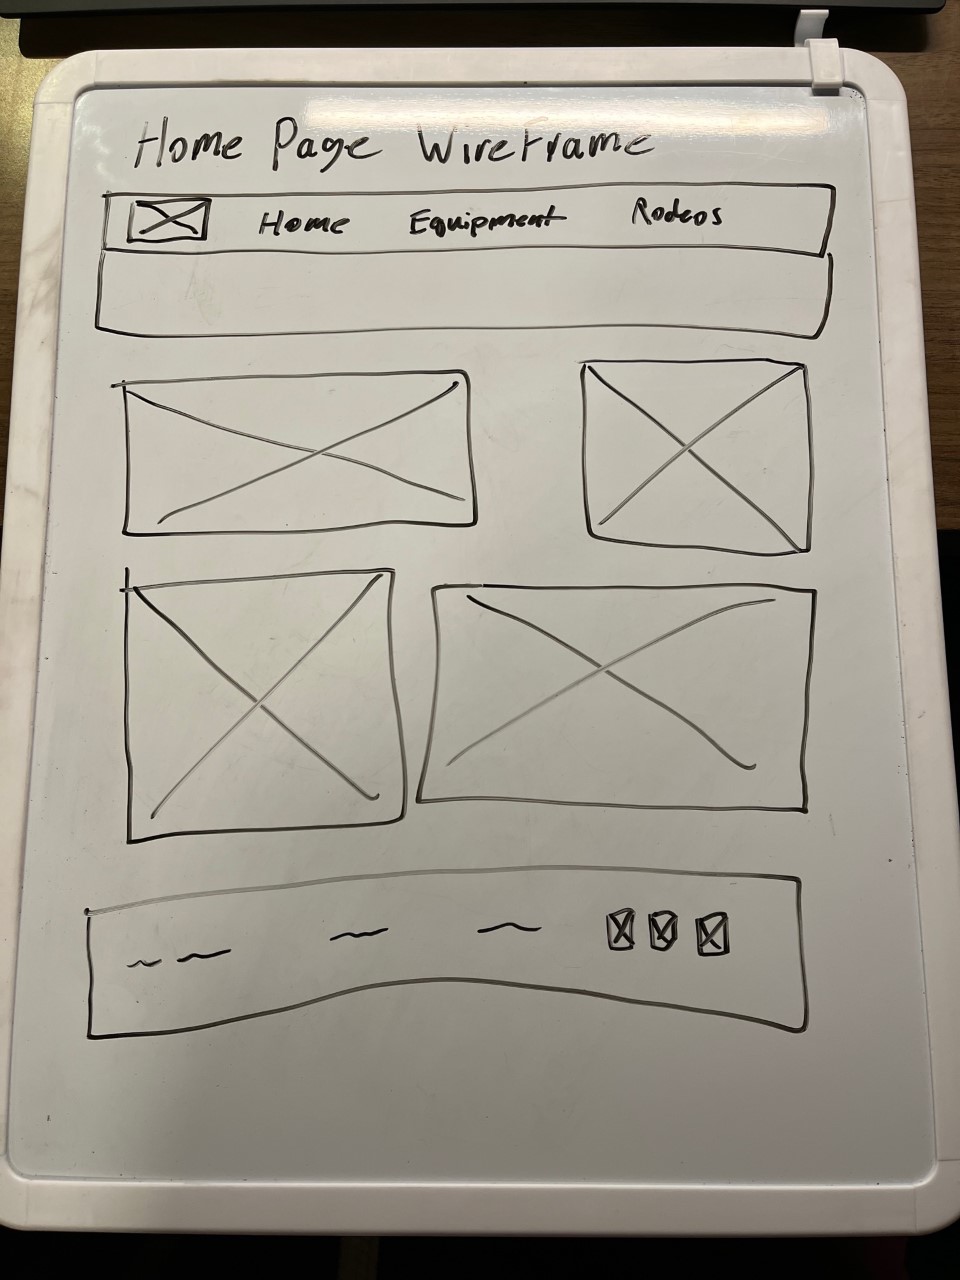 Home Page Wireframe
Home Equipment Rodeos